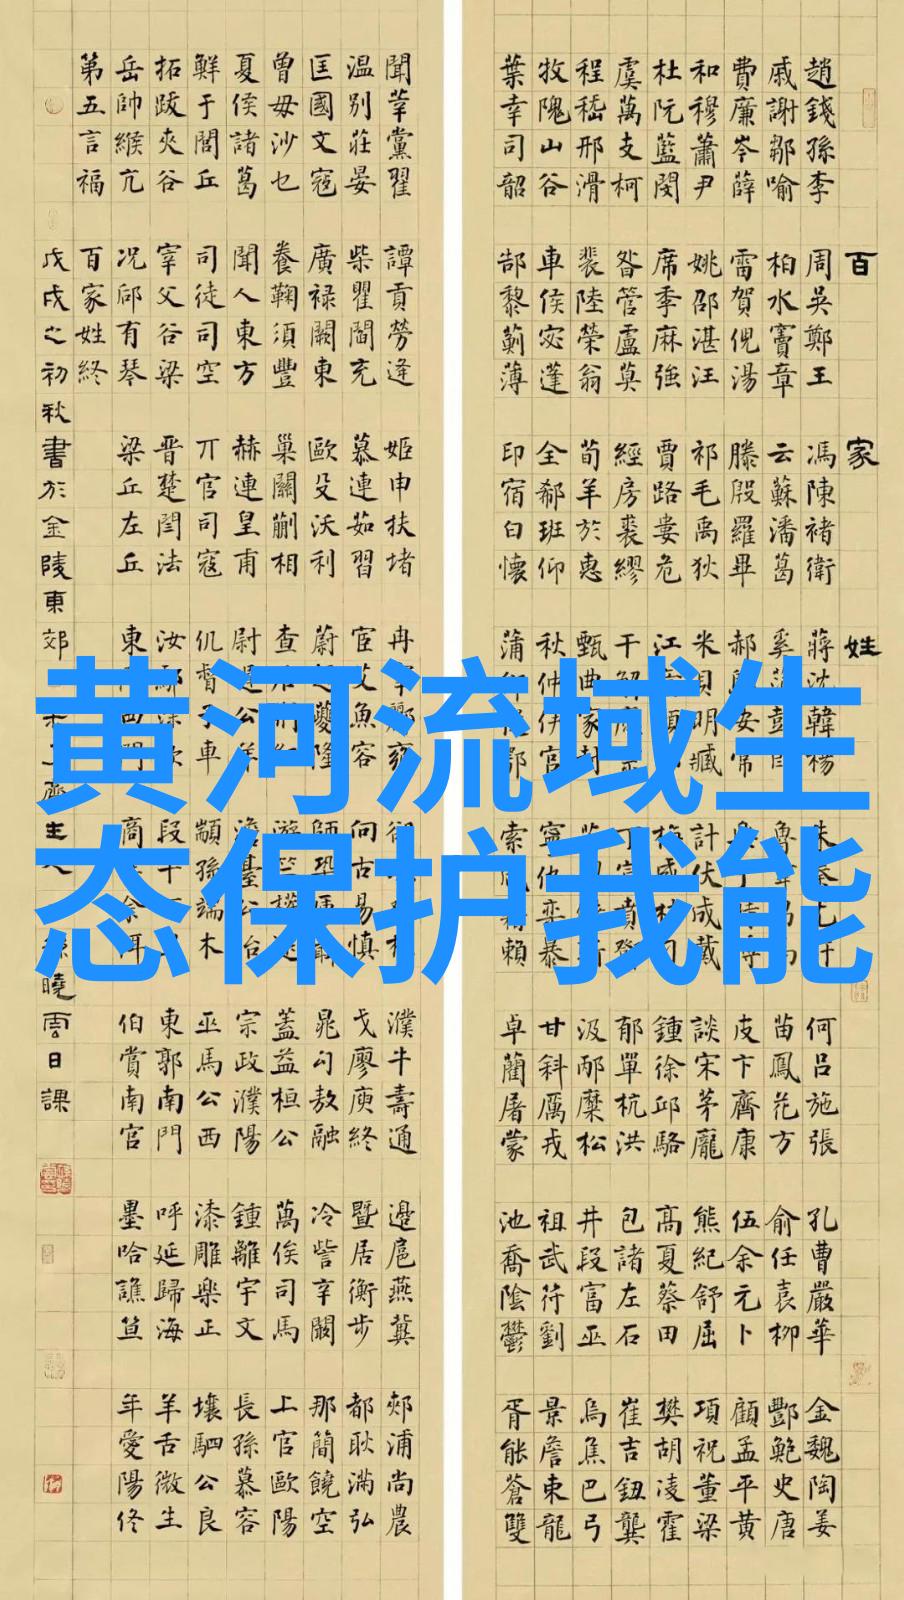 百家姓
趙錢孫李 周吳鄭王 馮陳褚衛 蔣沈韓楊 朱秦尤許 何呂施張 孔曹嚴華 金魏陶姜
戚謝鄒喻 柏水竇章 云蘇潘葛 奚范彭郎 魯韋昌馬 苗鳳花方 俞任袁柳 酆鮑史唐
費廉岑薛 雷賀倪湯 滕殷羅畢 郝鄔安常 樂于時傅 皮卞齊康 伍余元卜 顧孟平黃
和穆蕭尹 姚邵湛汪 祁毛禹狄 米貝明臧 計伏成戴 談宋茅龐 熊紀舒屈 項祝董梁
杜阮藍閔 席季麻強 賈路婁危 江 顏 梅盛林刁 鍾徐邱駱 高夏蔡田 樊胡凌霍
虞萬支柯 昝管盧莫 經房裘繆 干解應宗 丁宣賁鄧 郁單杭洪 包諸左石 崔吉鈕龔
程嵇邢滑 裴陸榮翁 荀羊於惠 甄曲家封 汲邴糜松 井段富巫 烏焦巴弓
牧隗山谷 車侯宓蓬 全郗班仰 秋仲伊宮 寧仇欒暴 甘斜厲戎 祖武符劉 景詹束龍
葉幸司韶 郜黎薊薄 印宿白懷 蒲 鄂 索咸籍賴 卓藺屠蒙 池喬陰鬱 胥能蒼雙
聞莘黨翟 譚貢勞逄 姬申扶堵 冉宰酈雍 濮牛壽通 邊扈燕冀 郟浦尚農
温別莊晏 柴瞿閻充 慕連茹習 宦艾魚容 向古易慎 戈廖庾終 暨居衡步 都耿滿弘
匡國文寇 廣祿闕東 歐殳沃利 蔚越夔隆 師鞏厙聶 晁勾敖融 冷訾辛闞 那簡饒空
曾毋沙乜 養鞠須豐 巢關蒯相 查后荊紅 游竺權逯 蓋益桓公 萬俟司馬 上官歐陽
夏侯諸葛 聞人東方 赫連皇甫 尉遲公羊 澹臺公冶 宗政濮陽 鍾離宇文 長孫慕容
鮮于閭丘 司徒司空 丌官司寇 仉督子車 顓孫端木 巫馬公西 漆雕樂正 壤駟公良
拓跋夾谷 宰父谷梁 晋楚閆法 汝鄢涂欽 段干 東郭南門 呼延歸海 羊舌微生
岳帥緱亢 況郈有琴 梁丘左丘 東 西門 商 佘佴 伯賞南宮 墨哈譙笪 年愛陽佟
第五言福 百家姓終
戊戌之初秋書於金陵東郊 齋主人孫曉雲日課
黄河流域生
态保护我能